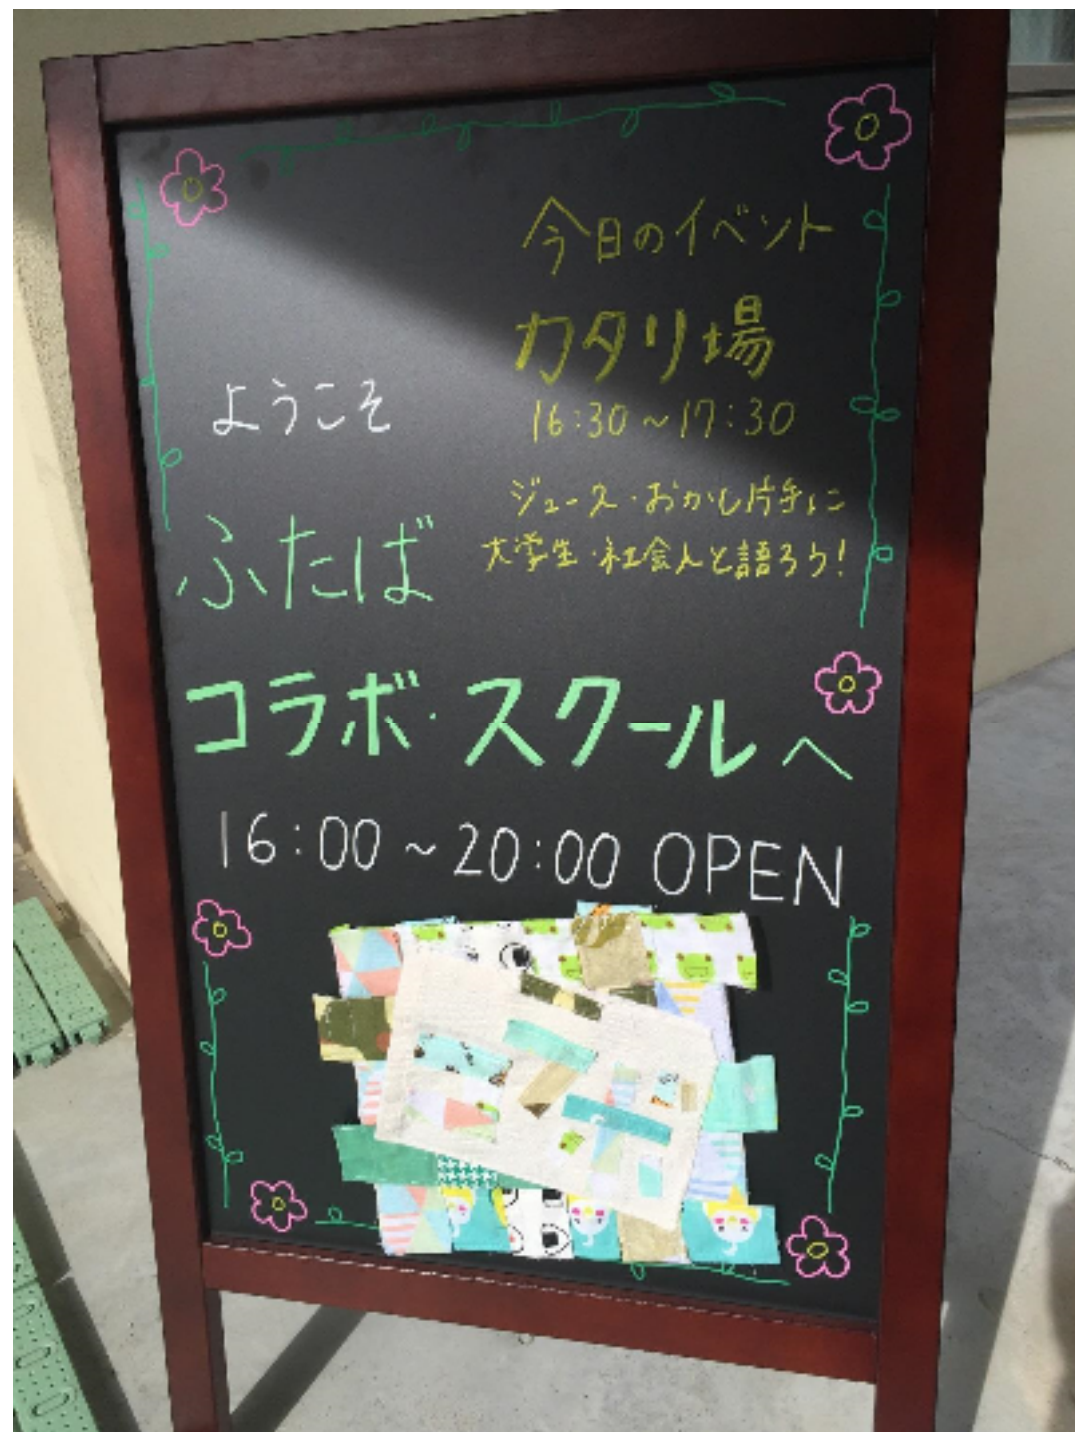 今日のイベント
カタリ場
16:30～17:30
ジュース・おかし片手に
大学生・社会人と語ろう！
ようこそ
ふたば
コラボ・スクールへ
16:00～20:00 OPEN